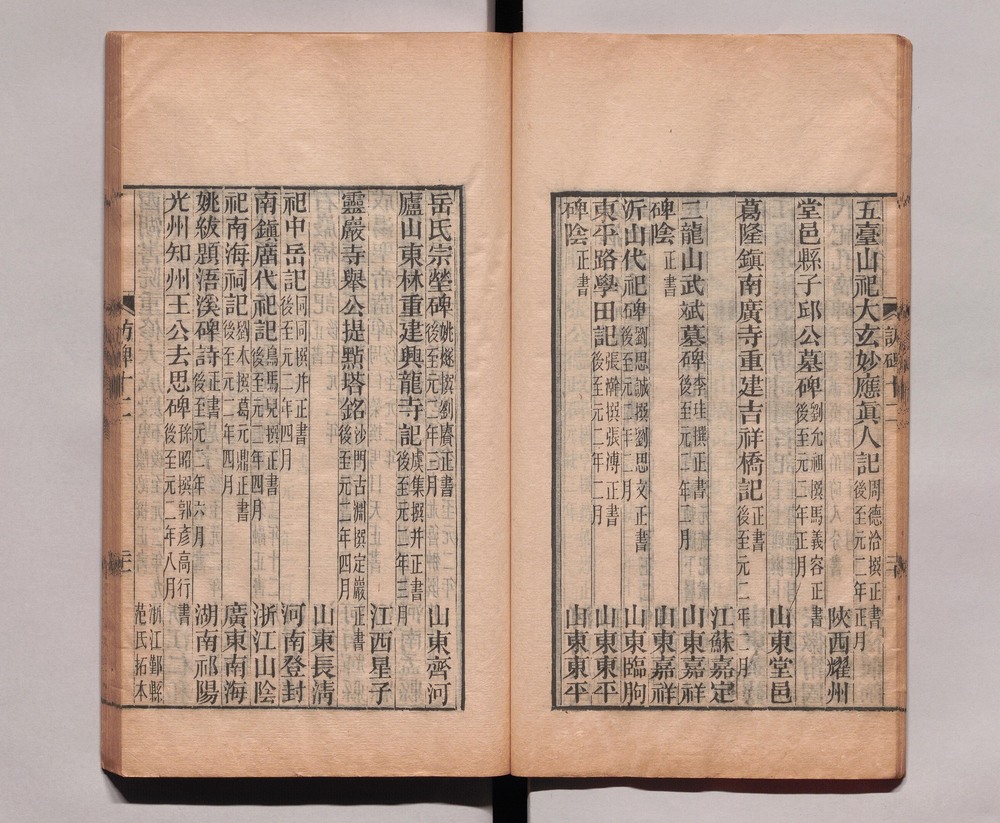 五臺山祀大玄妙應眞人記周德洽撰正書後至元二年正月
陝西耀州
堂邑縣子邱公墓碑劉允祖撰馬義容正書後至元二年正月
山東堂邑
葛隆鎮南廣寺重建吉祥橋記正書後至元二年二月
江蘇嘉定
三龍山武斌墓碑李珪撰正書後至元二年二月
山東嘉祥
碑陰正書
山東嘉祥
沂山代祀碑劉思誠撰劉思文正書後至元二年二月
山東臨朐
東平路學田記張㯋撰張溥正書後至元二年二月
山東東平
碑陰正書
山東東平
訪碑十二
岳氏宗塋碑姚燧撰劉賡正書後至元二年三月
山東齊河
廬山東林重建興龍寺記虞集撰并正書後至元二年三月
江西星子
靈巖寺舉公提點塔銘沙門古淵撰定巖正書後至元二年四月
山東長清
祀中岳記同同撰并正書後至元二年四月
河南登封
南鎮廣代祀記烏馬兒撰正書後至元二年四月
浙江山陰
祀南海祠記劉木撰葛元鼎正書後至元二年四月
廣東南海
姚紱題浯溪碑詩正書後至元二年六月
湖南祁陽
光州知州王公去思碑孫昭撰郭彥高行書後至元二年八月
浙江鄞縣范氏拓本
訪碑十二